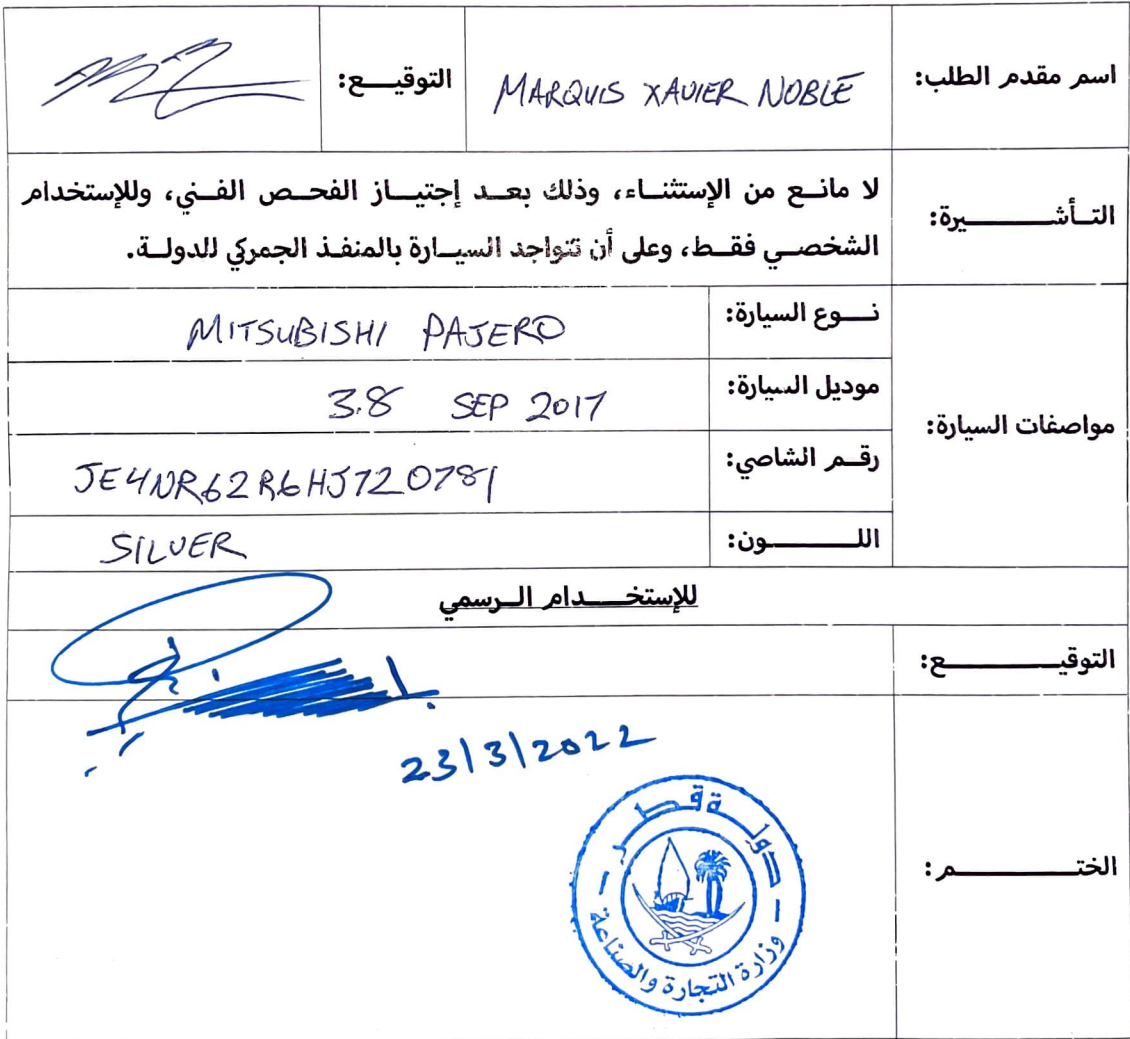 اسم مقدم الطلب: MARQUIS XAVIER NOBLE التوقيـــع:
التــأشـــــــــيرة: لا مانــع من الإستثنــاء، وذلك بعــد إجتيــاز الفحــص الفــني، وللإستخدام
الشخصــي فقــط، وعلى أن تتواجد السيــارة بالمنفـذ الجمركي للدولــة.
مواصفات السيارة:
نــــوع السيارة: MITSUBISHI PAJERO
موديل السيارة: 3.8 SEP 2017
رقــم الشاصي: JE4NR62R6HJ720781
اللـــــــــون: SILVER
للإستخــــــدام الــرسمي
التوقيـــــــــــع:
23/3/2022
الختـــــــــــم:
دولة قطر
وزارة التجارة والصناعة